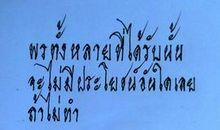 พรทั้งหลายที่ได้รับนั้น
จะไม่มีประโยชน์อันใดเลย
ถ้าไม่ทำ